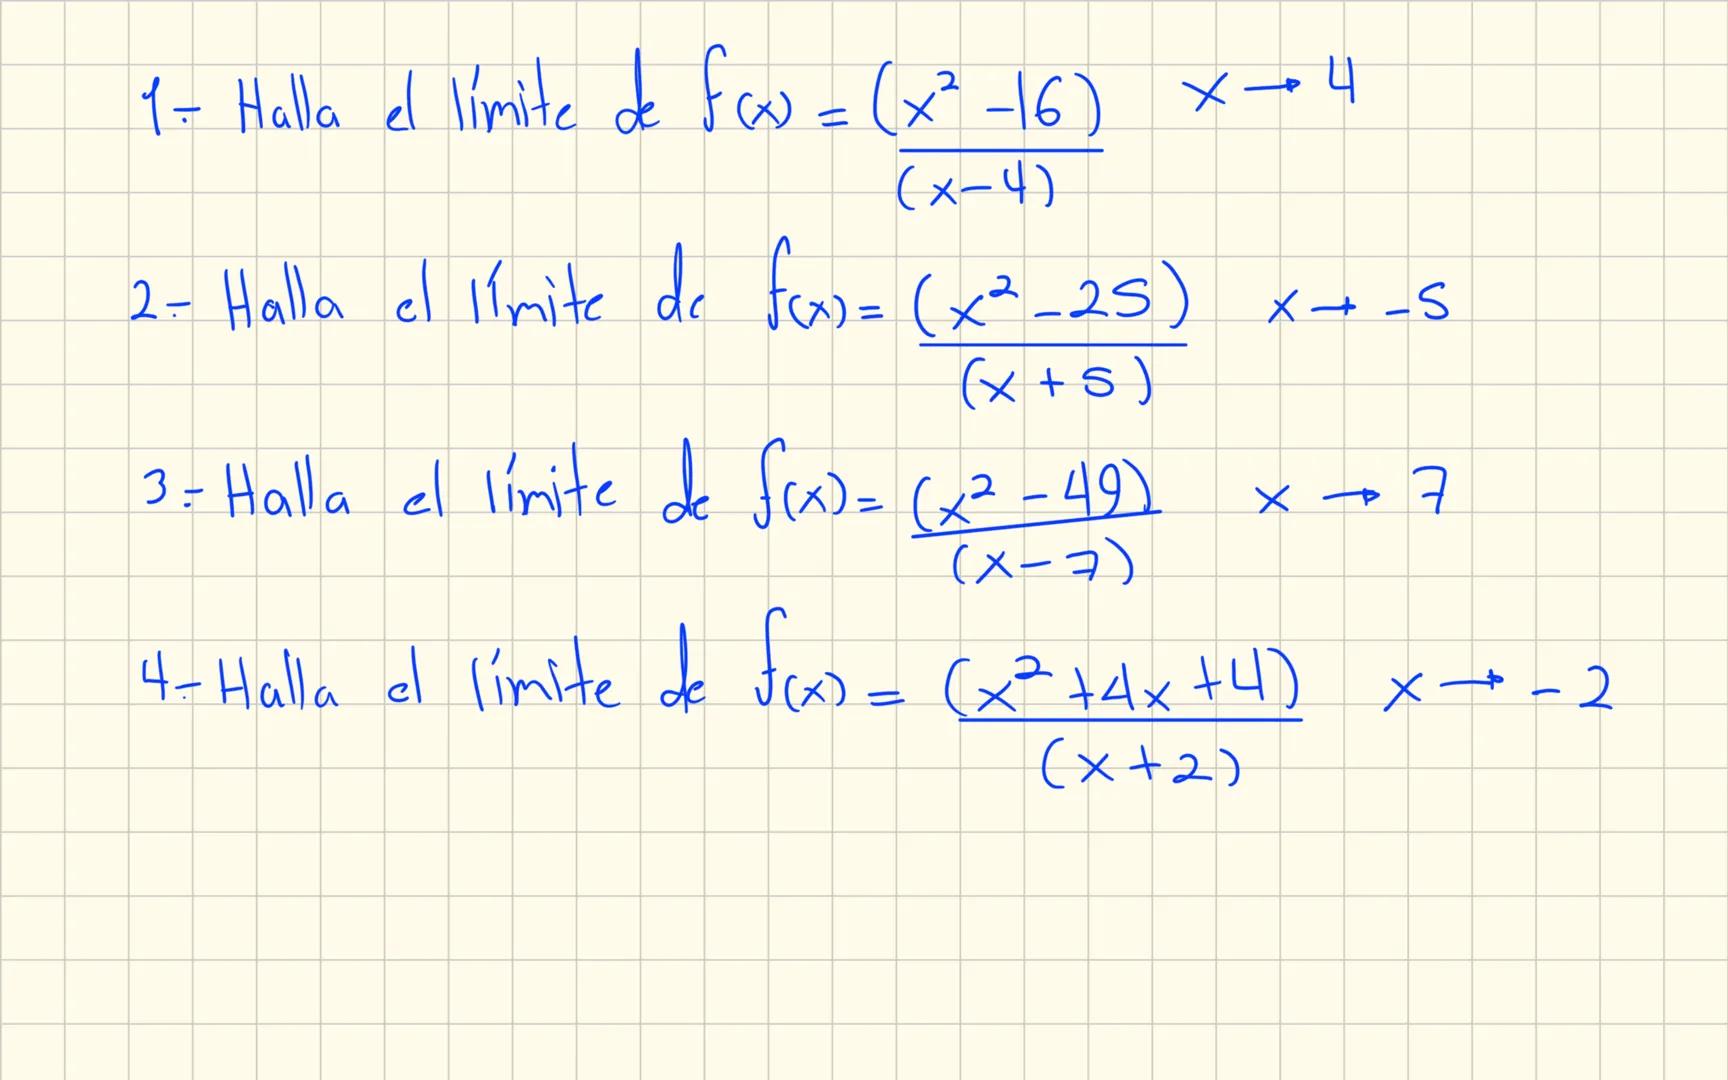 1.- Halla el límite de f(x) = (x² -16) x → 4
(x-4)
2.- Halla el límite de f(x) = (x² - 25) x → -5
(x + 5)
3.- Halla el límite de f(x) = (x² - 49) x → 7
(x - 7)
4.- Halla el límite de f(x) = (x² +4x +4) x → -2
(x+2)